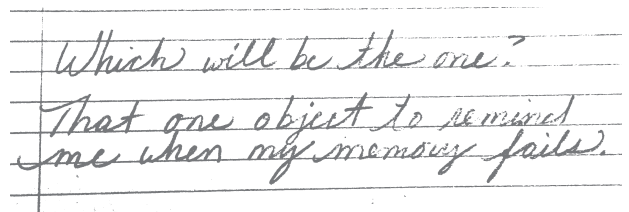 Which will be the one?
That one object to remind
me when my memory fails.